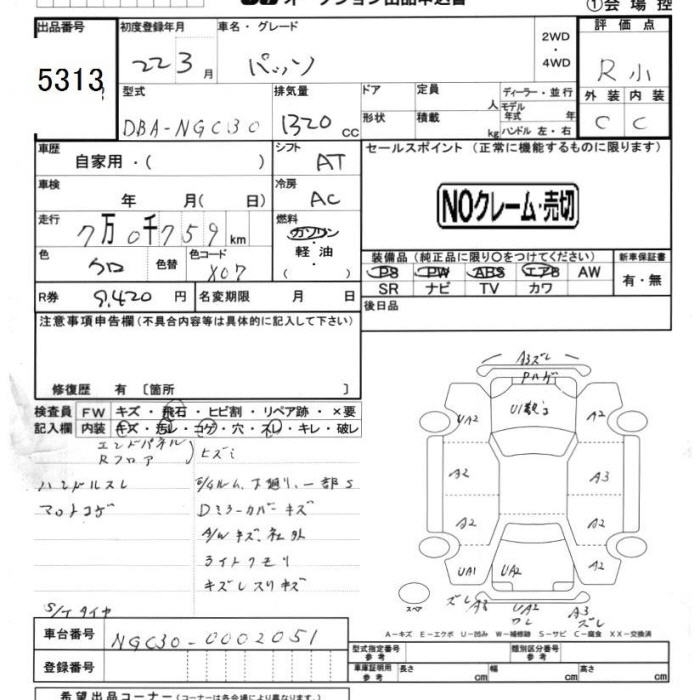 オークション出品申込書
①会場控
出品番号
5313
初度登録年月
22 3月
車名・グレード
パッソ
2WD
・
4WD
評価点
R 小
外装 内装
C C
型式
DBA-NGC30
排気量
1320 CC
ドア
定員 人
形状
積載 kg
ディーラー・並行
モデル年式 年
ハンドル 左・右
車歴
自家用・( )
シフト
AT
セールスポイント (正常に機能するものに限ります)
NOクレーム・売切
車検
年 月( 日)
冷房
AC
走行
7万0千759km
燃料
ガソリン
・
軽油
・
( )
色
クロ
色替
色コード
X07
装備品(純正品に限り○をつけてください)
PS PW ABS エアB AW
SR ナビ TV カワ
新車保証書
有・無
R券 9,420 円
名変期限 月 日
後日品
注意事項申告欄(不具合内容等は具体的に記入して下さい)
修復歴 有〔箇所 〕
検査員 FW キズ・飛石・ヒビ割・リペア跡・×要
記入欄 内装 キズ・汚レ・コゲ・穴・スレ・キレ・破レ
エンドパネル
Rフロア
ハンドルスレ
下廻り、一部S
マットコゲ
Dミラーカバーキズ
A/Wキズ、社外
ライトクモリ
キズレスリキズ
S/Tタイヤ
A3ズレ
Pハゲ
UA2
A2
A2
A3
A2
A2
UA1
UA2
A2
スペア
ズレ
A3
UA2
ワレ
A3
ズレ
A-キズ E-エクボ U-凹み W-補修跡 S-サビ C-腐食 XX-交換済
車台番号 NGC30-0002051
登録番号
型式指定番号 参考
類別区分番号 参考
車庫証明用 参考 長さ cm 幅 cm 高さ cm
希望出品コーナー(コーナーは各会場により異なります)